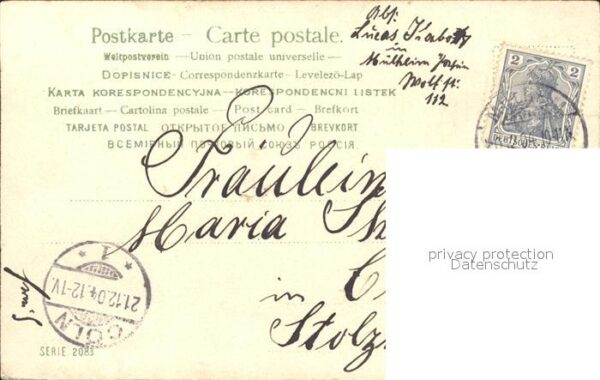 Postkarte – Carte postale.
Weltpostverein – Union postale universelle –
DOPISNICE – Correspondenzkarte – Levelező-Lap
KARTA KORESPONDENCYJNA – KORESPONDENCNI LISTEK
Briefkaart – Cartolina postale – Post card – Brefkort
TARJETA POSTAL ОТКРЫТОЕ ПИСЬМО BREVKORT
ВСЕМІРНЫЙ ПОЧТОВЫЙ СОЮЗЪ РОССІЯ.
Abs:
Lucas
in
Mülheim
Wolfstr:
112
2 2
Fräulein
Maria
in
Stolz
1
21.12.04.12-1V.
CÖLN
SERIE 2083
privacy protection
Datenschutz